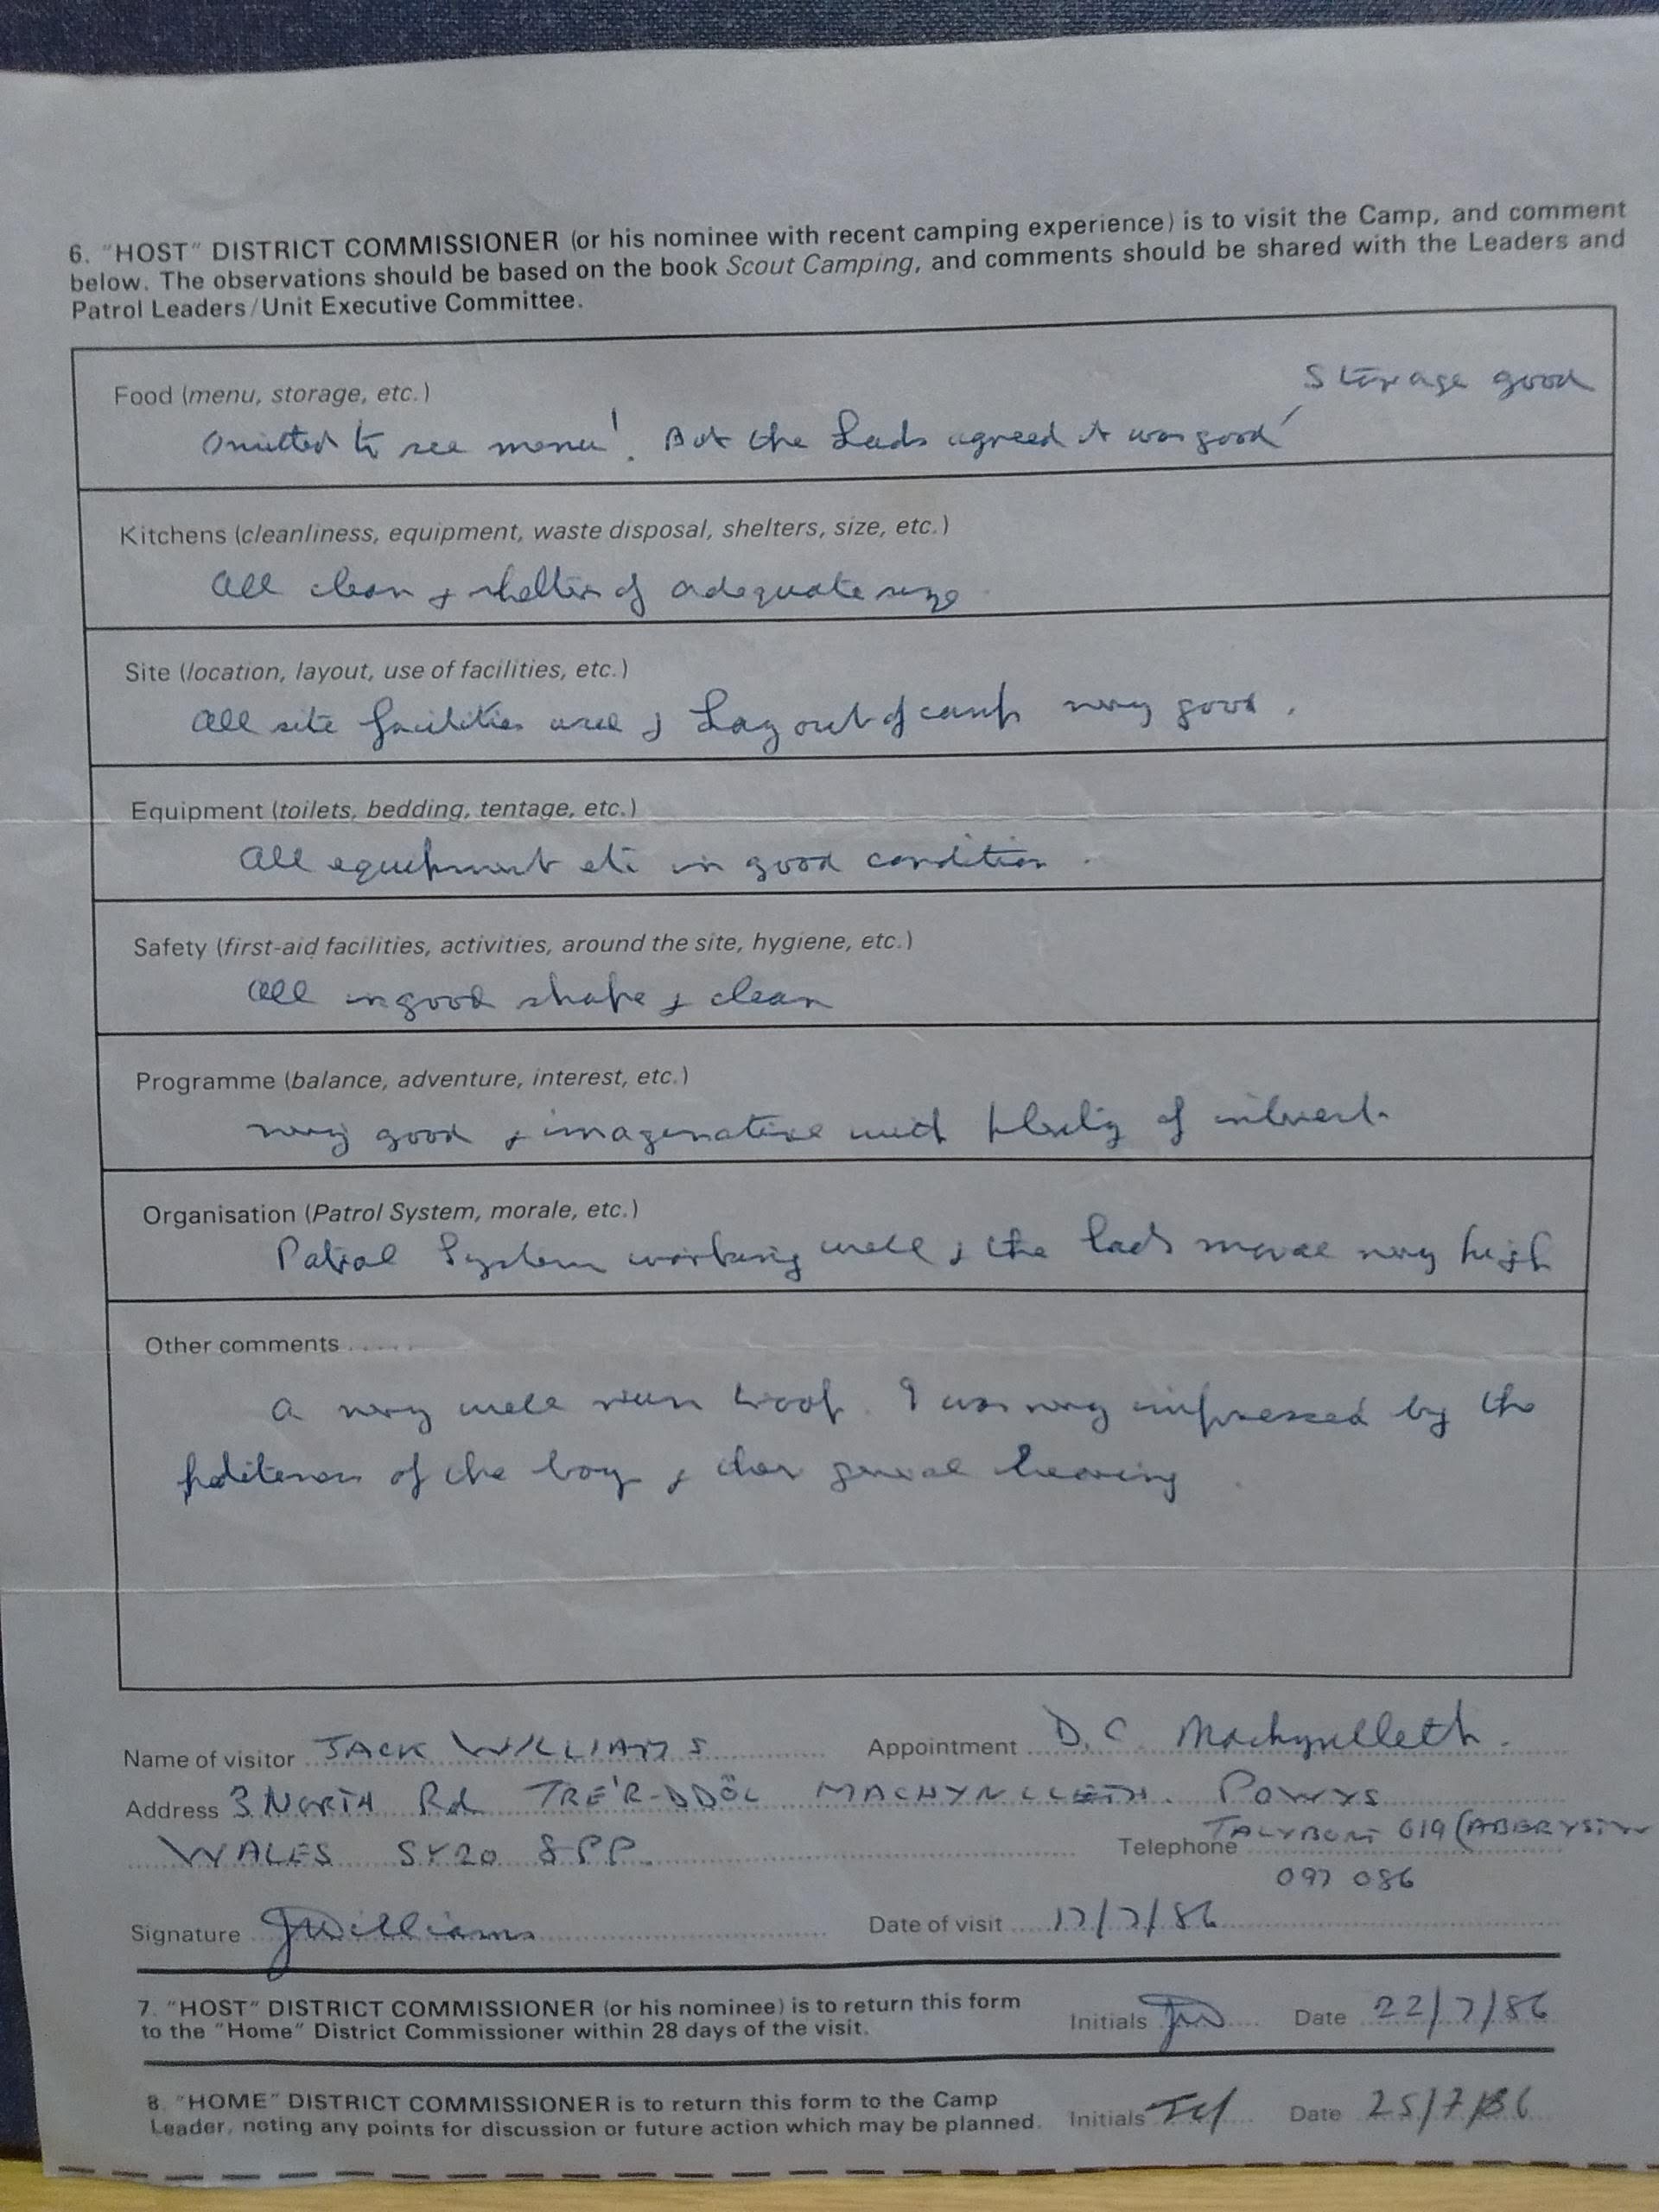 6. "HOST" DISTRICT COMMISSIONER (or his nominee with recent camping experience) is to visit the Camp, and comment
below. The observations should be based on the book Scout Camping, and comments should be shared with the Leaders and
Patrol Leaders/Unit Executive Committee.
Storage good
Food (menu, storage, etc.)
Omitted to see menu! But the Lads agreed it was good
Kitchens (cleanliness, equipment, waste disposal, shelters, size, etc.)
All clean & shelter of adequate size
Site (location, layout, use of facilities, etc.)
All site facilities used & Lay out of camp very good.
Equipment (toilets, bedding, tentage, etc.)
All equipment etc in good condition.
Safety (first-aid facilities, activities, around the site, hygiene, etc.)
All in good shape & clean
Programme (balance, adventure, interest, etc.)
very good & imaginative with plenty of interest.
Organisation (Patrol System, morale, etc.)
Patrol System working well & the lads morale very high
Other comments ......
A very well run troop. I was very impressed by the
politeness of the boys & their general bearing.
Name of visitor JACK WILLIAMS Appointment D.C. Machynlleth.
Address 3 NORTH Rd TRE'R-DDÔL MACHYNLLETH. POWYS
WALES SY20 8PP. Telephone TALYBONT 619 (ABERYSTW
097 086
Signature JWilliams Date of visit 17/7/86
7. "HOST" DISTRICT COMMISSIONER (or his nominee) is to return this form
to the "Home" District Commissioner within 28 days of the visit. Initials JW Date 22/7/86
8. "HOME" DISTRICT COMMISSIONER is to return this form to the Camp
Leader, noting any points for discussion or future action which may be planned. Initials Date 25/7/86